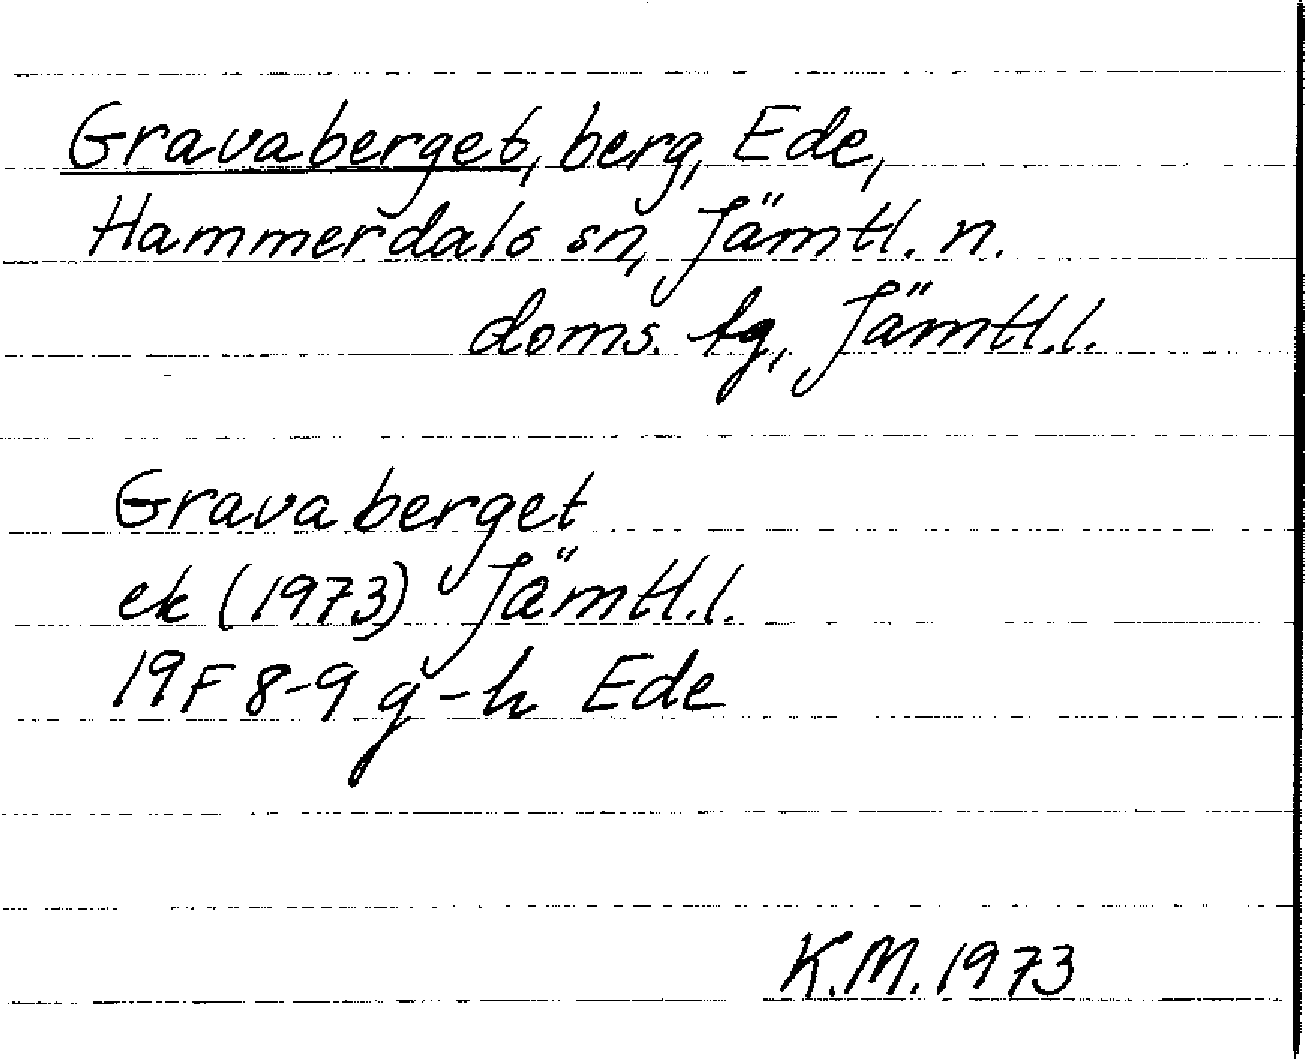 Gravaberget, berg, Ede,
Hammerdals sn, Jämtl. n.
doms. tg, Jämtl.l.
Gravaberget
ek (1973) Jämtl.l.
19F 8-9 g-h Ede
K.M. 1973